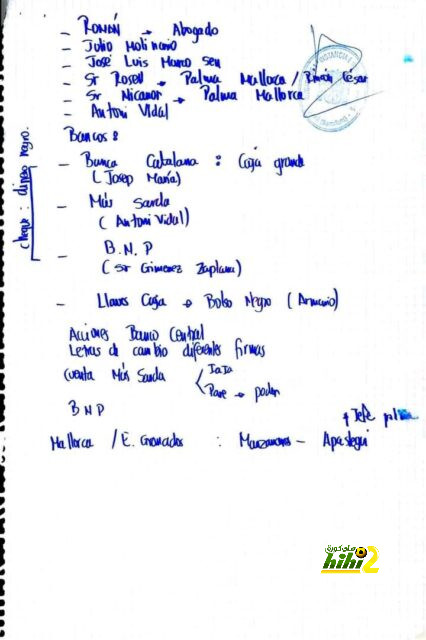 - ROMÁN → Abogado
- Julio Molinario
- José Luis Marco Seu
- Sr Rosell → Palma Mallorca / Román César
- Sr Nicanor → Palma Mallorca
- Antoni Vidal
Bancos:
- Banca Catalana : Caja grande
(Josep María)
- Más Sarda
(Antoni Vidal)
- B.N.P
(Sr Gimenez Zaplana)
- Llaves Caja → Bolso Negro (Armario)
Acciones Banco Central
Letras de cambio diferentes firmas
Cuenta Más Sarda
B N P
Mallorca / E. Granados : Manzanares - Apastegui
cheque: dinero negro.
هاي كورة
hihi2